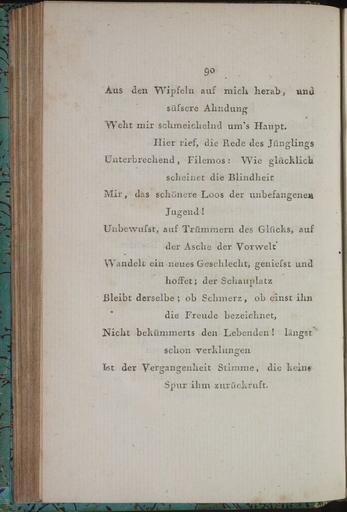 90
Aus den Wipfeln auf mich herab, und
süfsere Ahndung
Weht mir schmeichelnd um's Haupt.
Hier rief, die Rede des Jünglings
Unterbrechend, Filemos: Wie glücklich
scheinet die Blindheit
Mir, das schönere Loos der unbefangenen
Jugend!
Unbewufst, auf Trümmern des Glücks, auf
der Asche der Vorwelt
Wandelt ein neues Geschlecht, geniefst und
hoffet; der Schauplatz
Bleibt derselbe; ob Schmerz, ob einst ihn
die Freude bezeichnet,
Nicht bekümmerts den Lebenden! längst
schon verklungen
Ist der Vergangenheit Stimme, die keine
Spur ihm zurückruft.